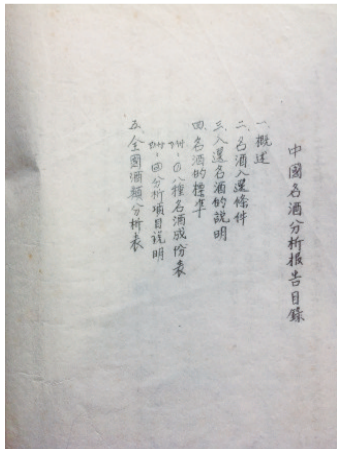 中國名酒分析報告目錄
一、概述
二、名酒入選條件
三、入選名酒的說明
四、名酒的標準
附:(1)八種名酒成份表
附:(2)分析項目說明
五、全國酒類分析表